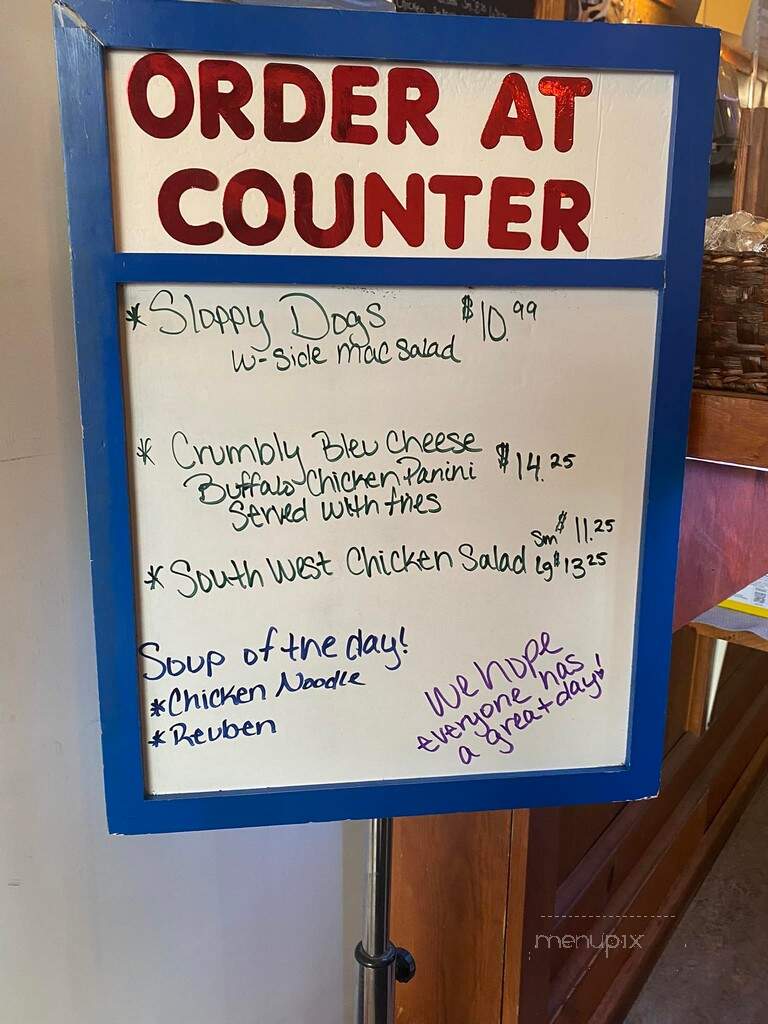 ORDER AT
COUNTER
* Sloppy Dogs $10.99
w- side mac salad
* Crumbly Bleu Cheese
Buffalo Chicken Panini $14.25
Served with fries
* South West Chicken Salad Sm $11.25
Lg $13.25
Soup of the day!
* Chicken Noodle
* Reuben
We hope
everyone has
a great day!
menupix